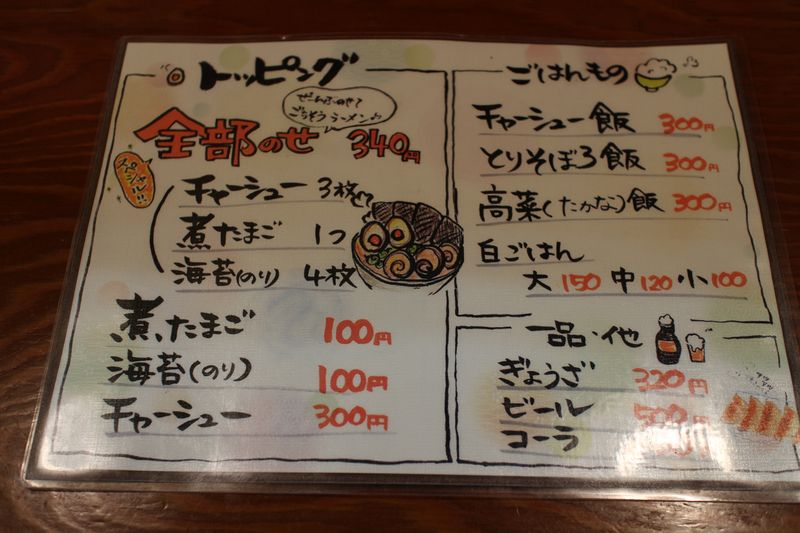 トッピング
ぜーんぶのせて
ごちそうラーメン♪
全部のせ 340円
スペシャル!!!
チャーシュー 3枚
煮たまご 1つ
海苔(のり) 4枚
煮たまご 100円
海苔(のり) 100円
チャーシュー 300円
ごはんもの
チャーシュー飯 300円
とりそぼろ飯 300円
高菜(たかな)飯 300円
白ごはん
大150 中120 小100
一品・他
ぎょうざ 320円
ビール 500円
コーラ